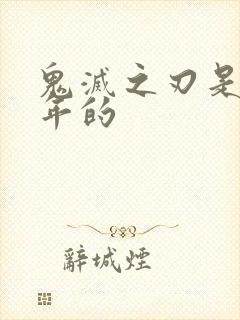 鬼滅之刃是
年的
辭城煙